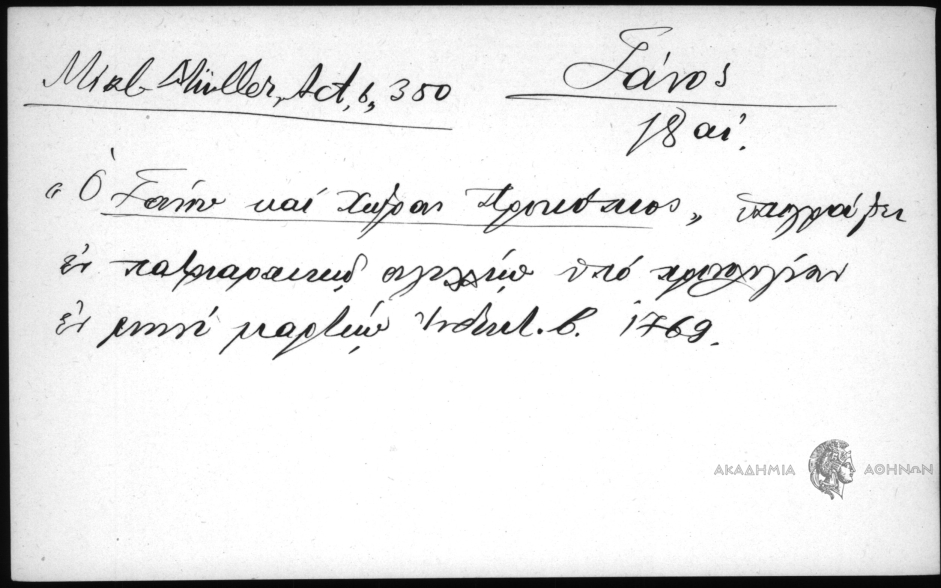 Mikl-Müller, Act, 6, 350
Γάνος
18 αἰ.
" Ὁ Γάνου καὶ Χώρας Προκόπιος „ ὑπογράφει
ἐν πατριαρχικῷ σιγιλλίῳ ὑπὸ χρονολογίαν
ἐν μηνὶ μαρτίῳ Ἰνδικτ. β. 1769.
ΑΚΑΔΗΜΙΑ ΑΘΗΝΩΝ